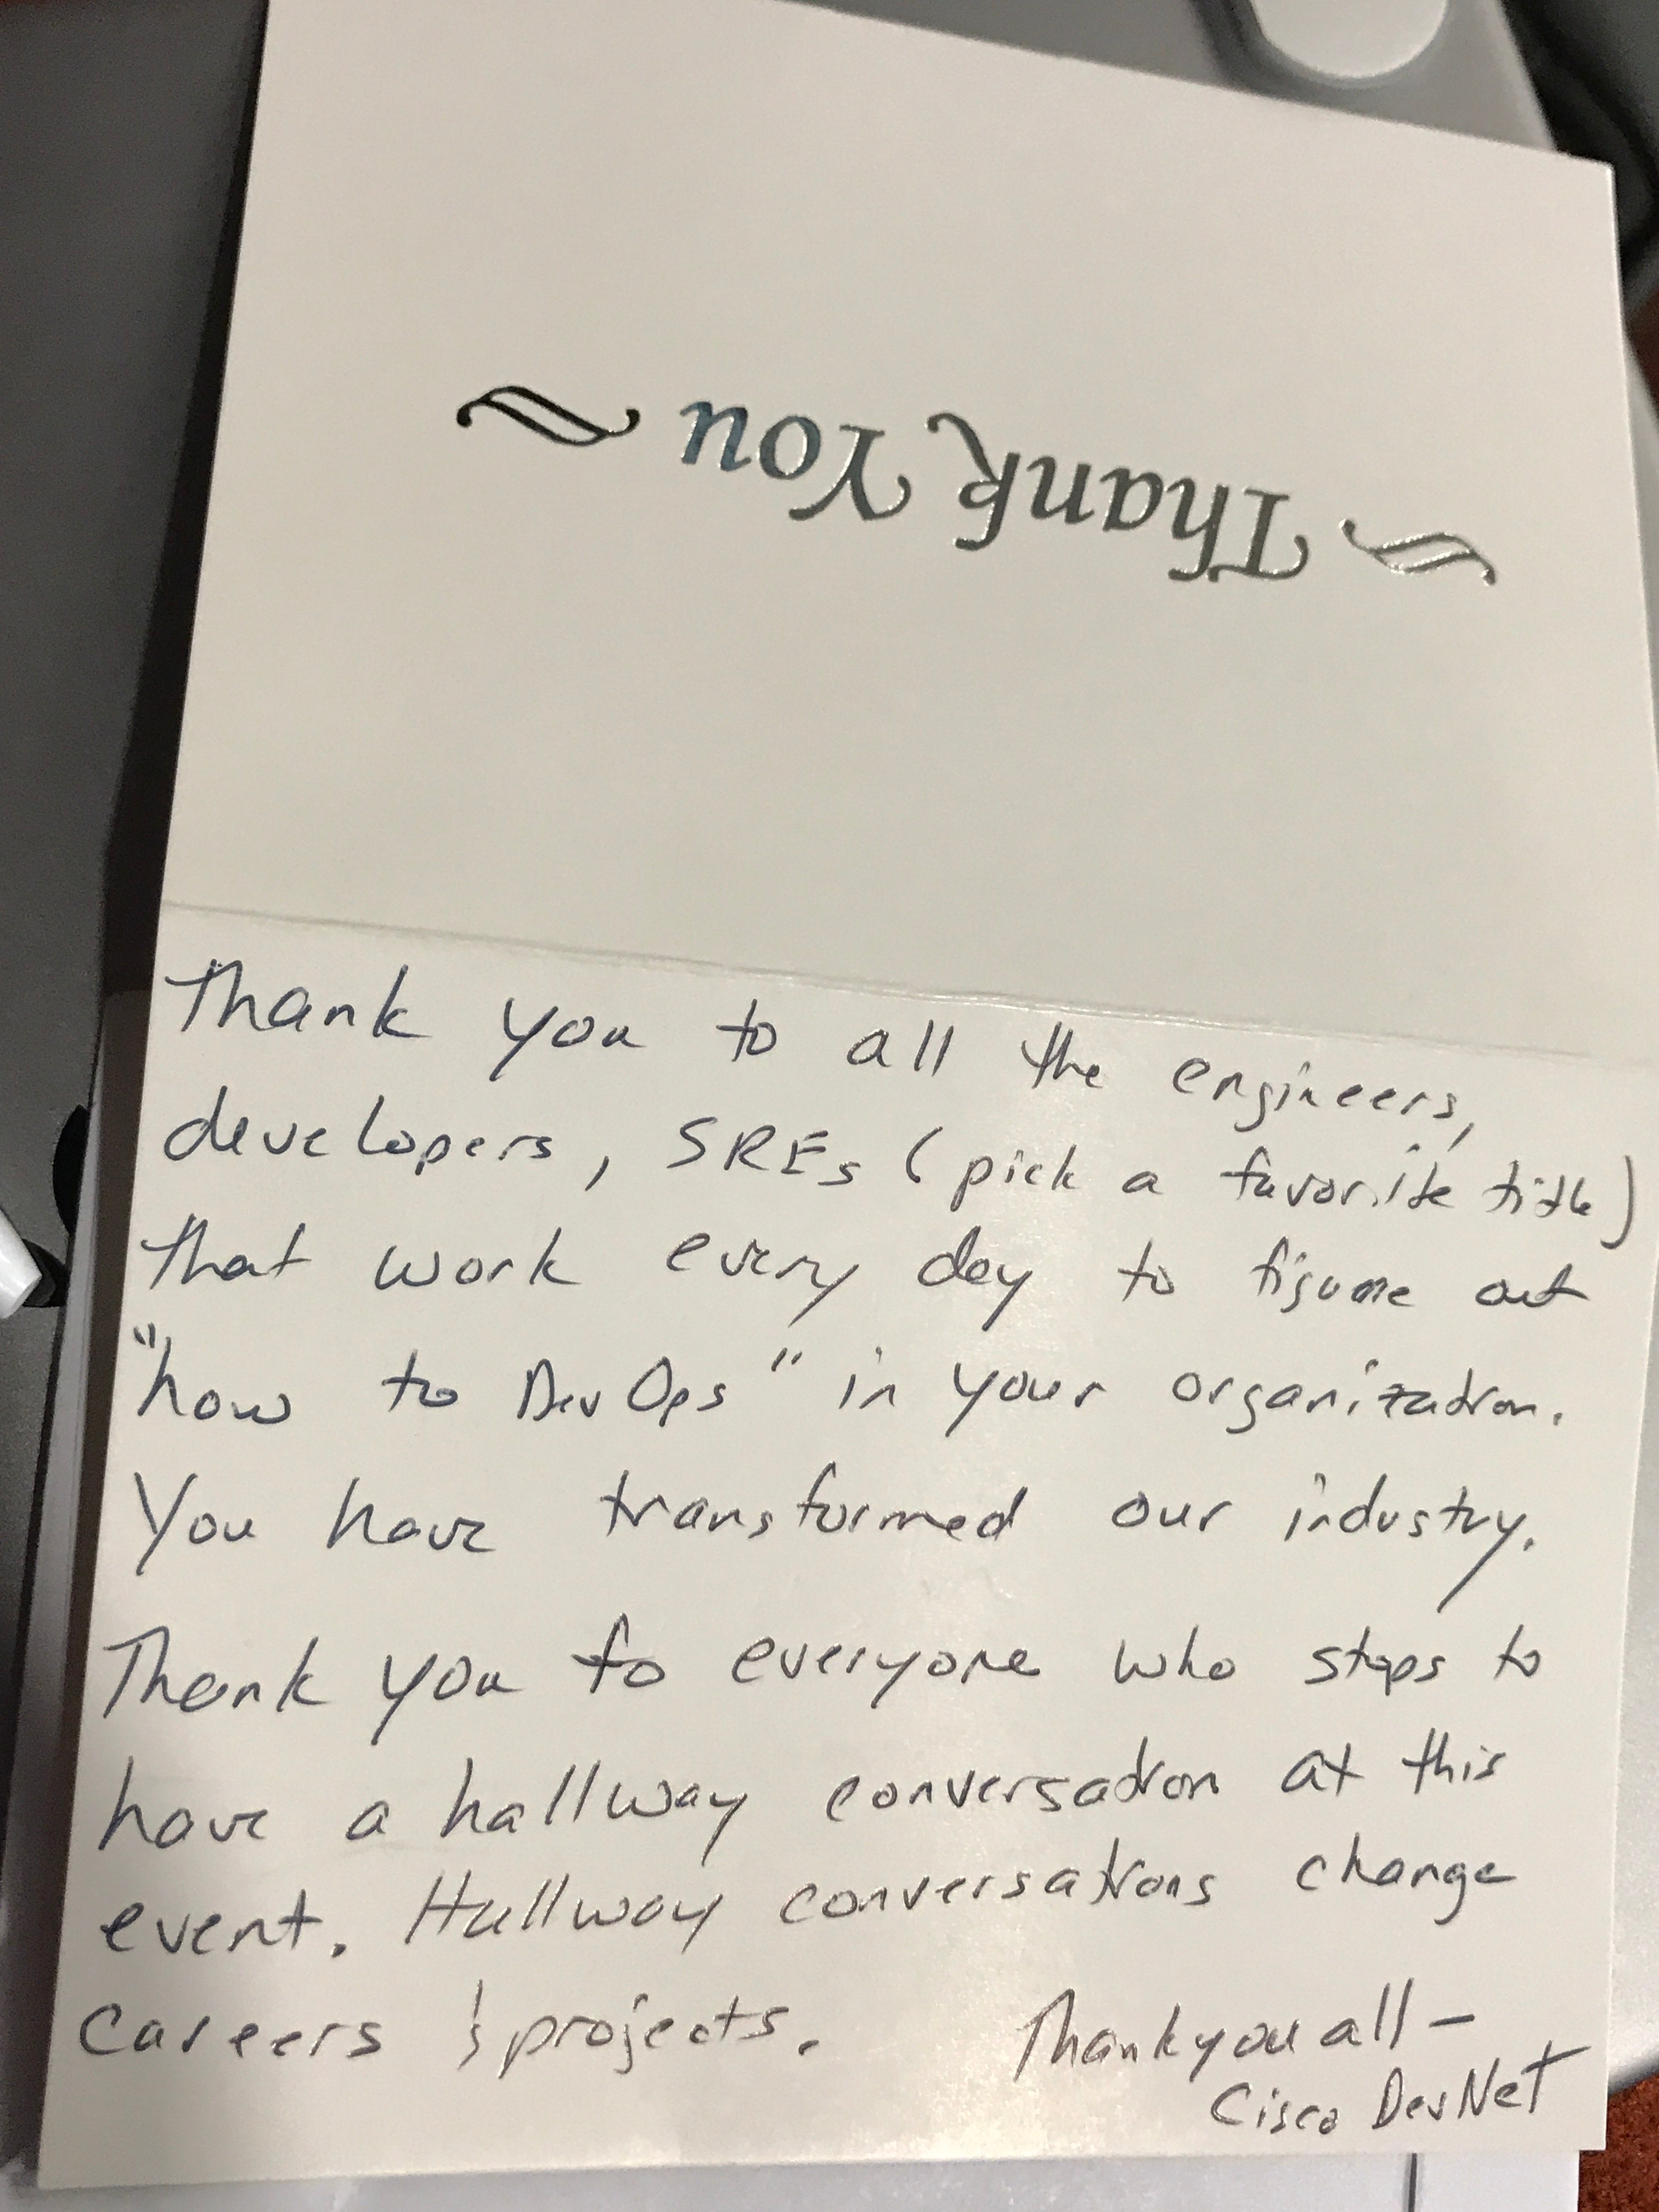 Thank You
Thank you to all the engineers,
developers, SREs (pick a favorite title)
that work every day to figure out
"how to DevOps" in your organization.
You have transformed our industry.
Thank you to everyone who stops to
have a hallway conversation at this
event. Hallway conversations change
careers & projects.
Thank you all -
Cisco DevNet